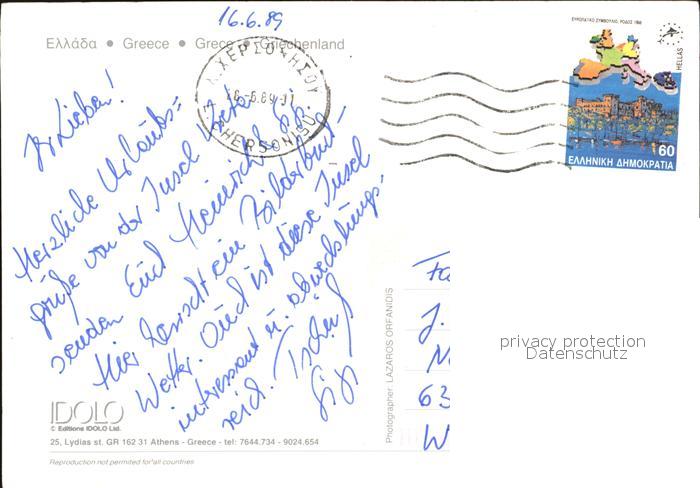 16.6.89
Ελλάδα • Greece • Grece • Griechenland
ΕΥΡΩΠΑΪΚΟ ΣΥΜΒΟΥΛΙΟ, ΡΟΔΟΣ 1988
HELLAS
60
ΕΛΛΗΝΙΚΗ ΔΗΜΟΚΡΑΤΙΑ
ΧΕΡΣΟΝΗΣΟΥ
-6.89-11
HERSONISOU
Ihr Lieben!
Herzliche Urlaubs-
grüße von der Insel Kreta
senden Euch Heinrich & Gigi.
Hier herrscht ein Bilderbuch-
Wetter. Auch ist diese Insel
interessant u. abwechslungs-
reich. Tschüß
Gigi
Fa
J.
M
63
W
privacy protection
Datenschutz
Photographer: LAZAROS ORFANIDIS
IDOLO
© Editions IDOLO Ltd.
25, Lydias st. GR 162 31 Athens - Greece - tel: 7644.734 - 9024.654
Reproduction not permited for all countries